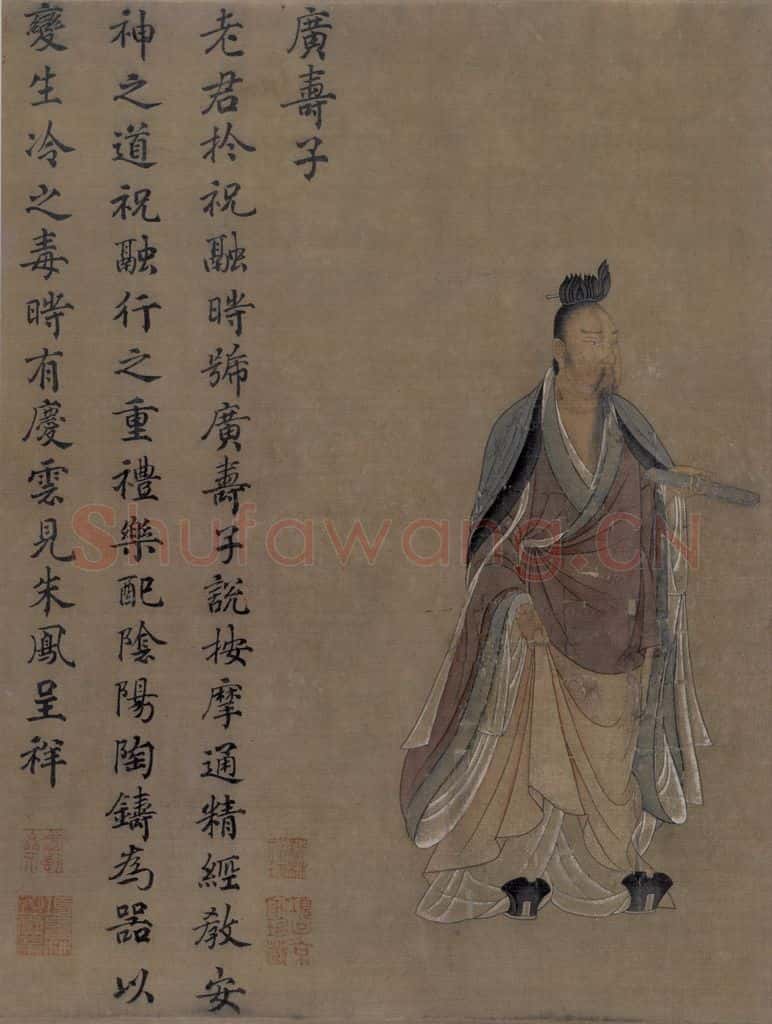 廣壽子
老君扵祝融時號廣壽子說按摩通精經教安
神之道祝融行之重禮樂配陰陽陶鑄為器以
變生冷之毒時有慶雲見朱鳳呈祥
Shufawang.CN